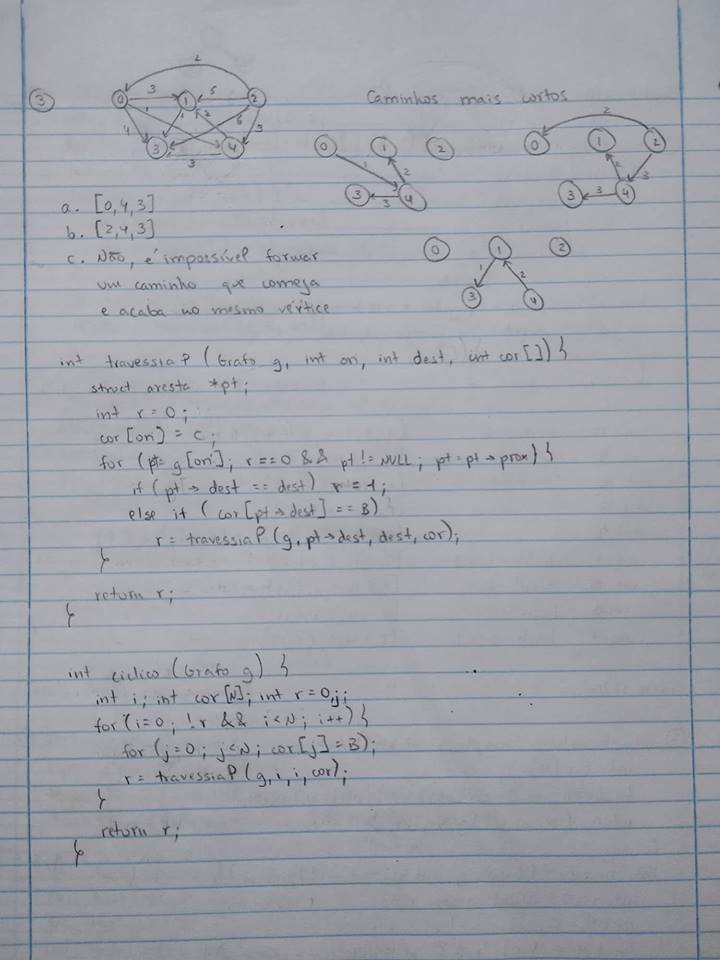 3
2
0 3 1 5 2
1 1 2 6
4 3 4 3
3
Caminhos mais curtos
0 1 2
1 2
3 3 4
2
0 1 2
2 3
3 3 4
a. [0,4,3]
b. [2,4,3]
c. Não, é impossível formar
um caminho que começa
e acaba no mesmo vértice
0 1 2
1 2
3 4
int travessiaP (Grafo g, int ori, int dest, int cor[]) {
struct aresta *pt;
int r = 0;
cor[ori] = C;
for (pt = g[ori]; r == 0 && pt != NULL; pt = pt → prox) {
if (pt → dest == dest) r = 1;
else if (cor[pt → dest] == B)
r = travessiaP (g, pt → dest, dest, cor);
}
return r;
}
int ciclico (Grafo g) {
int i; int cor[N]; int r = 0, j;
for (i=0; !r && i<N; i++) {
for (j=0; j<N; cor[j] = B);
r = travessiaP (g, i, i, cor);
}
return r;
}